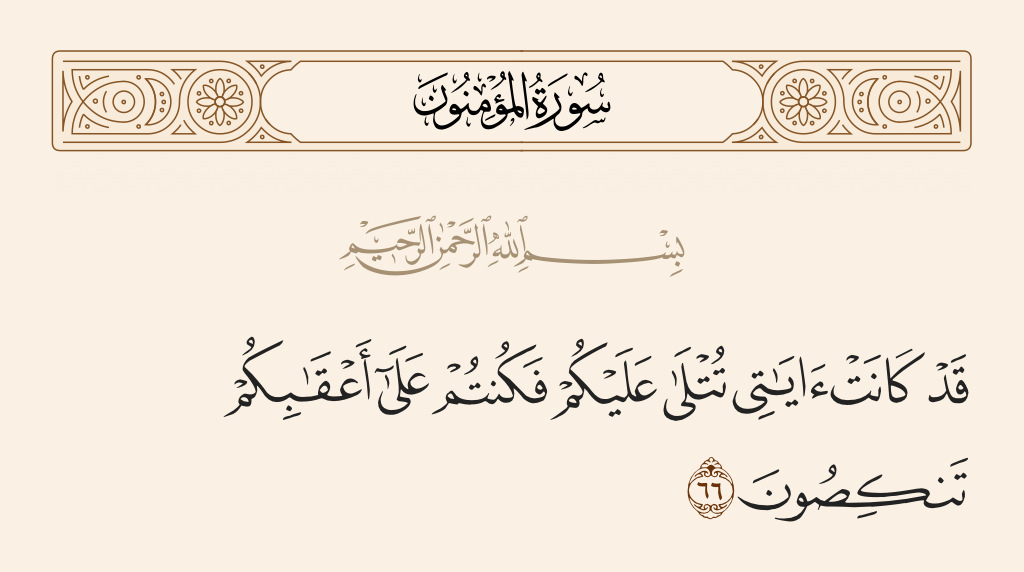 سُورَةُ الْمُؤْمِنُونَ
بِسْمِ ٱللَّهِ ٱلرَّحْمَٰنِ ٱلرَّحِيمِ
قَدْ كَانَتْ ءَايَٰتِى تُتْلَىٰ عَلَيْكُمْ فَكُنتُمْ عَلَىٰٓ أَعْقَٰبِكُمْ
تَنكِصُونَ ٦٦